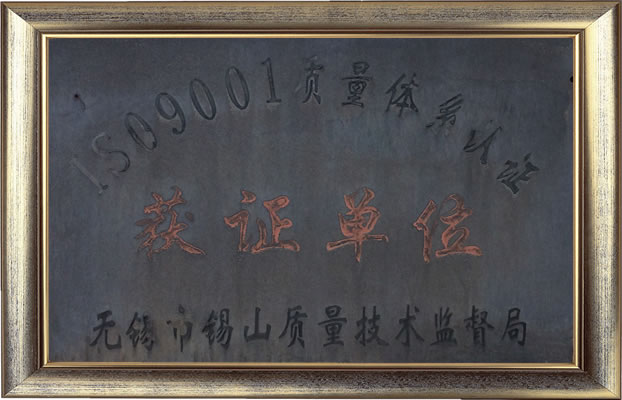 ISO9001质量体系认证
获证单位
无锡市锡山质量技术监督局